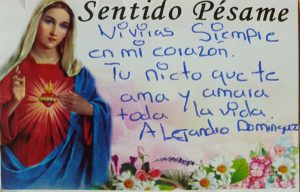 Sentido Pésame
Vivirás Siempre
en mi corazon.
Tu nieto que te
ama y amara
toda la vida.
Alejandro Dominguez